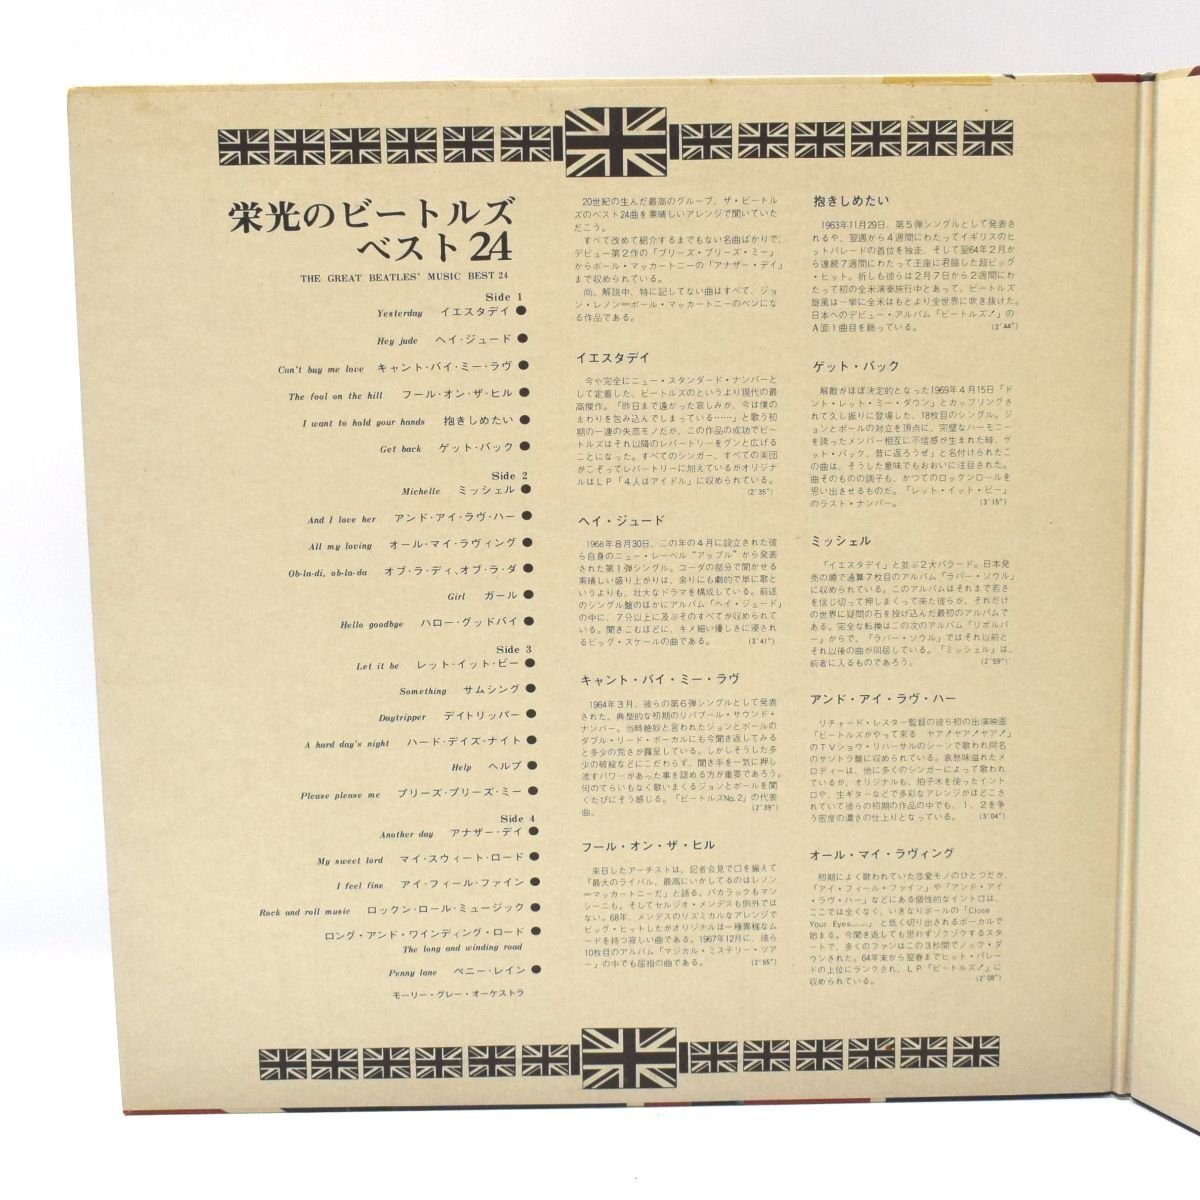 栄光のビートルズ
ベスト24
THE GREAT BEATLES' MUSIC BEST 24
Side 1
Yesterday イエスタデイ●
Hey jude ヘイ・ジュード●
Can't buy me love キャント・バイ・ミー・ラヴ●
The fool on the hill フール・オン・ザ・ヒル●
I want to hold your hands 抱きしめたい●
Get back ゲット・バック●
Side 2
Michelle ミッシェル●
And I love her アンド・アイ・ラヴ・ハー●
All my loving オール・マイ・ラヴィング●
Ob-la-di, ob-la-da オブ・ラ・ディ、オブ・ラ・ダ●
Girl ガール●
Hello goodbye ハロー・グッドバイ●
Side 3
Let it be レット・イット・ビー●
Something サムシング●
Daytripper デイトリッパー●
A hard day's night ハード・デイズ・ナイト●
Help ヘルプ●
Please please me プリーズ・プリーズ・ミー●
Side 4
Another day アナザー・デイ●
My sweet lord マイ・スウィート・ロード●
I feel fine アイ・フィール・ファイン●
Rock and roll music ロックン・ロール・ミュージック●
ロング・アンド・ワインディング・ロード●
The long and winding road
Penny lane ペニー・レイン●
モーリー・グレー・オーケストラ
20世紀の生んだ最高のグループ、ザ・ビートル
ズのベスト24曲を素晴しいアレンジで聞いていた
だこう。
すべて改めて紹介するまでもない名曲ばかりで、
デビュー第2作の「プリーズ・プリーズ・ミー」
からポール・マッカートニーの「アナザー・デイ」
まで収められている。
尚、解説中、特に記してない曲はすべて、ジョ
ン・レノン＝ポール・マッカートニーのペンにな
る作品である。
イエスタデイ
今や完全にニュー・スタンダード・ナンバーと
して定着した、ビートルズのというより現代の最
高傑作。「昨日まで遠かった哀しみが、今は僕の
まわりを包み込んでしまっている……」と歌う初
期の一連の失恋モノだが、この作品の成功でビー
トルズはそれ以降のレパートリーをグンと広げる
ことになった。すべてのシンガー、すべての楽団
がこぞってレパートリーに加えているがオリジナ
ルはLP「4人はアイドル」に収められている。
(2′35″)
ヘイ・ジュード
1968年8月30日、この年の4月に設立された彼
ら自身のニュー・レーベル“アップル”から発表
された第1弾シングル。コーダの部分で聞かせる
素晴しい盛り上がりは、余りにも劇的で単に歌と
いうよりも、壮大なドラマを構成している。前述
のシングル盤のほかにアルバム「ヘイ・ジュード」
の中に、7分以上に及ぶそのすべてが収められて
いる。聞きこむほどに、キメ細い優しさに浸され
るビッグ・スケールの曲である。 (3′41″)
キャント・バイ・ミー・ラヴ
1964年3月、彼らの第6弾シングルとして発表
された、典型的な初期のリバプール・サウンド・
ナンバー。当時絶妙と言われたジョンとポールの
ダブル・リード・ボーカルにも今聞き返してみる
と多少の荒さが露呈している。しかしそうした多
少の破綻などにこだわらず、聞き手を一気に押し
流すパワーがあった事を認める方が重要であろう。
何のてらいもなく歌いまくるジョンとポールを聞
くたびにそう感じる。「ビートルズNo.2」の代表
曲。 (2′39″)
フール・オン・ザ・ヒル
来日したアーチストは、記者会見で口を揃えて
「最大のライバル、最高にいかしてるのはレノン
＝マッカートニーだ」と語る。バカラックもマン
シーニも。そしてセルジオ・メンデスも例外では
ない。68年、メンデスのリズミカルなアレンジで
ビッグ・ヒットしたがオリジナルは一種異様なム
ードを持つ寂しい曲である。1967年12月に、彼ら
10枚目のアルバム「マジカル・ミステリー・ツア
ー」の中でも屈指の曲である。 (2′55″)
抱きしめたい
1963年11月29日、第5弾シングルとして発表さ
れるや、翌週から4週間にわたってイギリスのヒ
ットパレードの首位を独走、そして翌64年2月か
ら連続7週間にわたって王座に君臨した超ビッグ
・ヒット。折しも彼らは2月7日から2週間にわ
たって初の全米演奏旅行中とあって、ビートルズ
旋風は一挙に全米はもとより全世界に吹き抜けた。
日本へのデビュー・アルバム「ビートルズ!」の
A面1曲目を飾っている。 (2′44″)
ゲット・バック
解散がほぼ決定的となった1969年4月15日「ド
ント・レット・ミー・ダウン」とカップリングさ
れて久し振りに登場した、18枚目のシングル。ジ
ョンとポールの対立を頂点に、完璧なハーモニー
を誇ったメンバー相互に不信感が生まれた時、ゲ
ット・バック、昔に返ろうぜ」と名付けられたこ
の曲は、そうした意味でもおおいに注目された。
曲そのものの調子も、かつてのロックンロールを
思い出させるものだ。「レット・イット・ビー」
のラスト・ナンバー。 (3′15″)
ミッシェル
「イエスタデイ」と並ぶ2大バラード。日本発
売の順で通算7枚目のアルバム「ラバー・ソウル」
に収められている。このアルバムはそれまで若さ
を信じ切って押しまくって来た彼らが、それだけ
の世界に疑問の石を投げ込んだ最初のアルバムで
ある。完全な転換はこの次のアルバム「リボルバ
ー」からで、「ラバー・ソウル」ではそれ以前と
それ以後の曲が同居している。「ミッシェル」は、
前者に入るものであろう。 (2′59″)
アンド・アイ・ラヴ・ハー
リチャード・レスター監督の彼ら初の出演映画
「ビートルズがやって来る ヤア!ヤア!ヤア!」
のTVショウ・リハーサルのシーンで歌われ同名
のサントラ盤に収められている。哀愁味溢れたメ
ロディーは、他に多くのシンガーによって歌われ
ているが、オリジナルも、拍子木を使ったイント
ロや、生ギターなどで多彩なアレンジがほどこさ
れていて彼らの初期の作品の中でも、1、2を争
う密度の濃さの仕上りとなっている。 (3′04″)
オール・マイ・ラヴィング
初期によく歌われていた恋愛モノのひとつだが、
「アイ・フィール・ファイン」や「アンド・アイ
・ラヴ・ハー」などにある個性的なイントロは、
ここでは全くなく、いきなりポールの「Close
Your Eyes……」と低く切り出されるボーカルで
始まる。今聞き返しても思わずゾクゾクするスタ
ートで、多くのファンはこの3秒間でノック・ダ
ウンされた。64年末から翌春までヒット・パレー
ドの上位にランクされ、LP「ビートルズ!」に
収められている。 (2′08″)